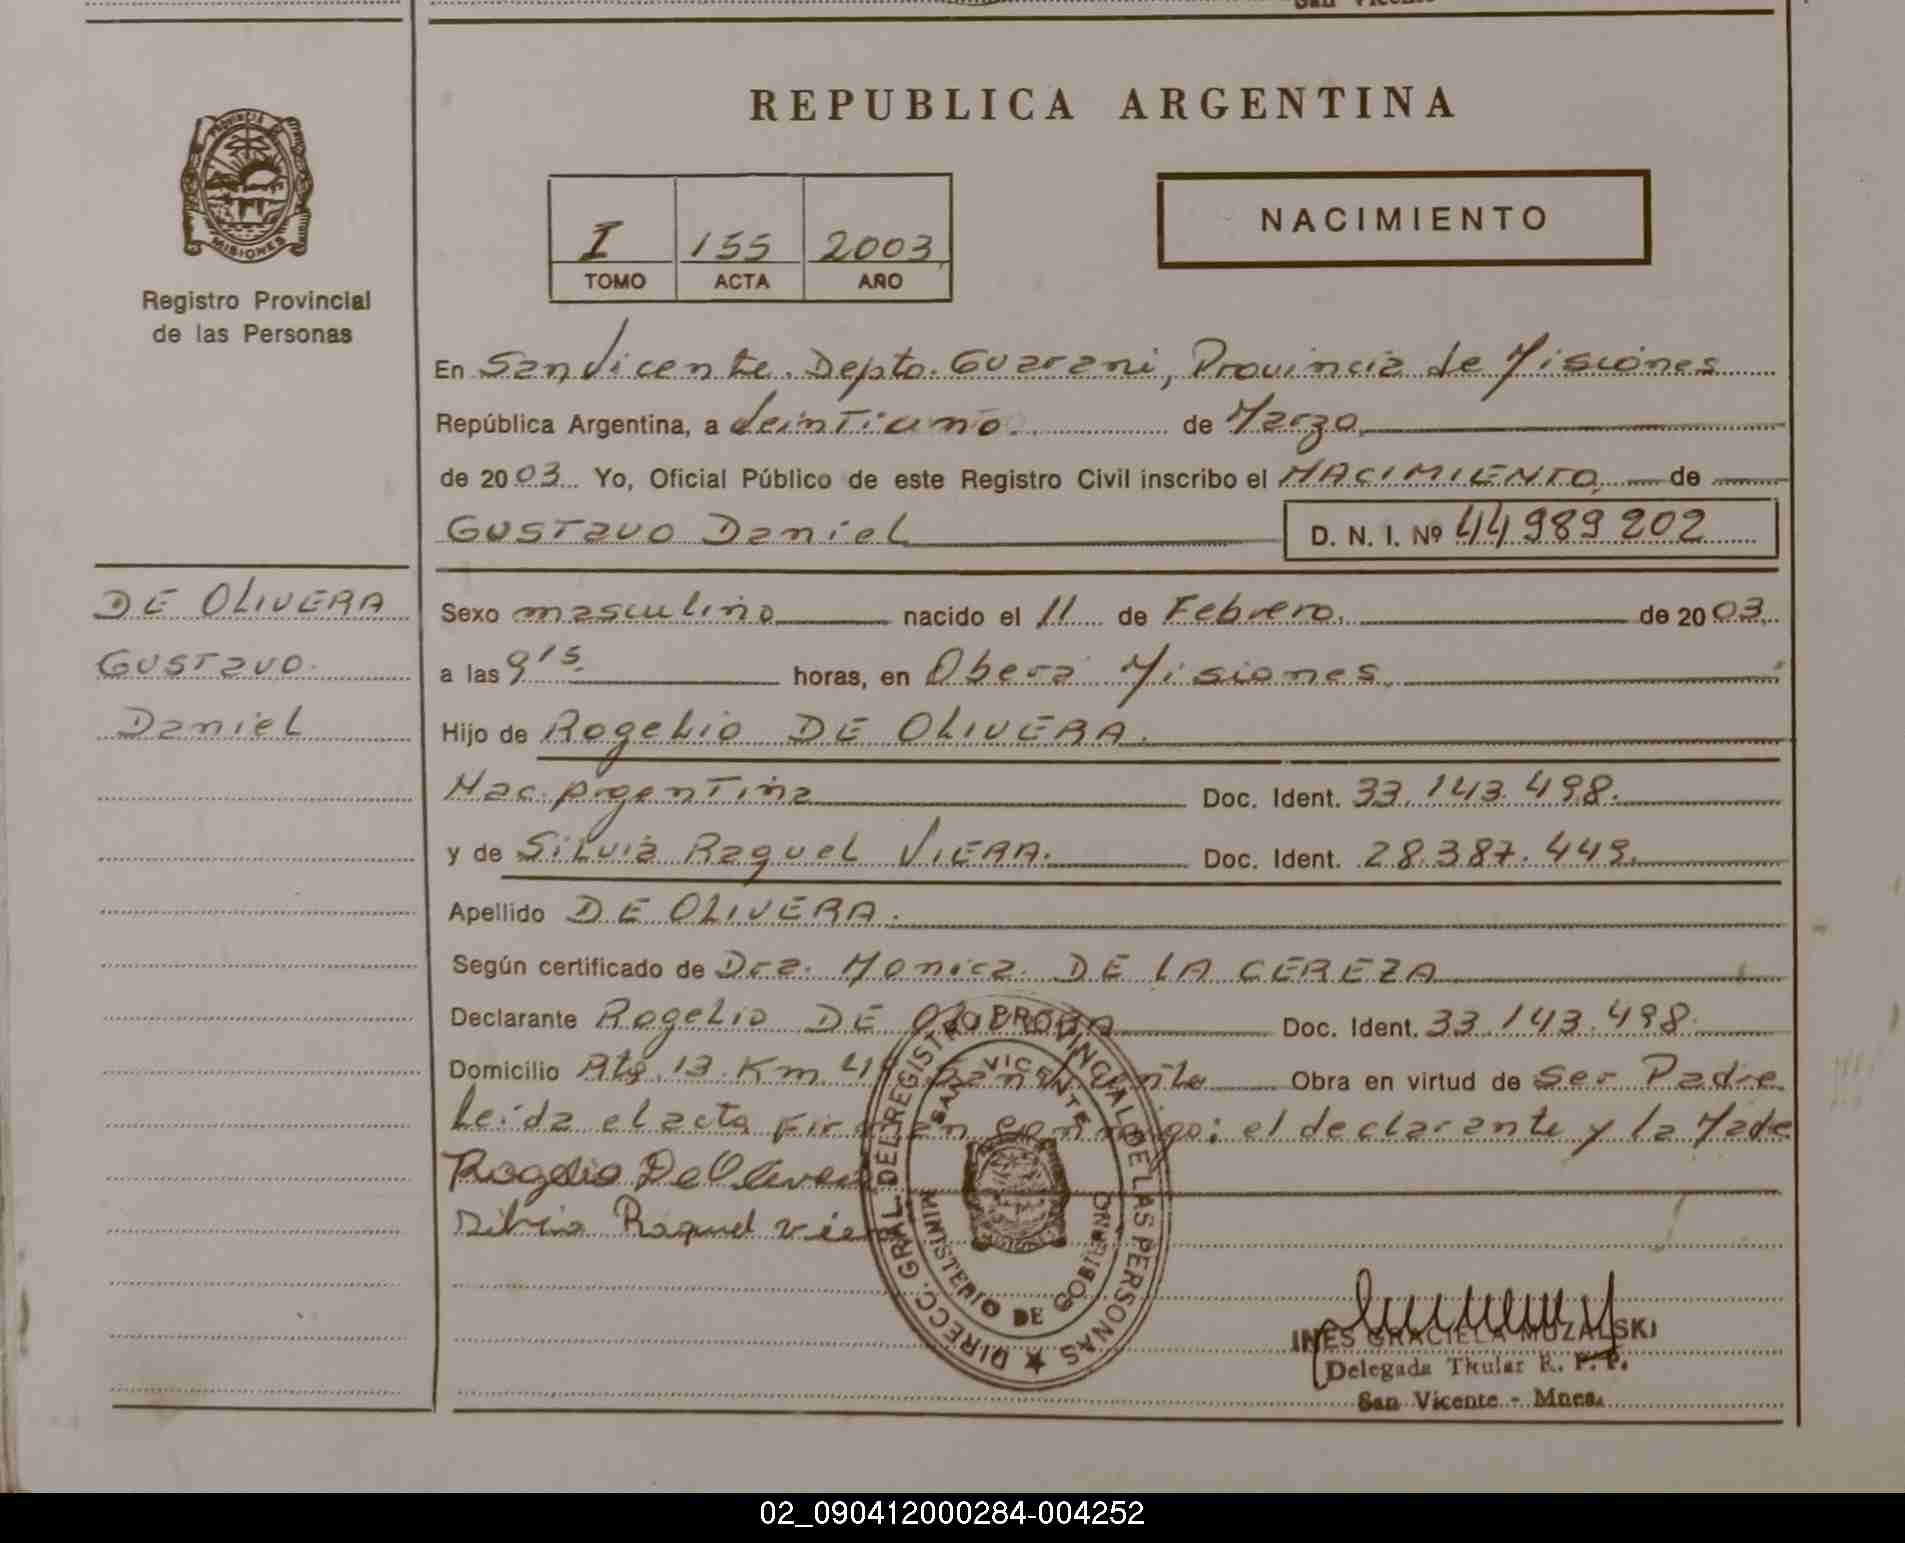 San Vicente
REPUBLICA ARGENTINA
PROVINCIA DE
MISIONES
Registro Provincial
de las Personas
I 155 2003
TOMO ACTA AÑO
NACIMIENTO
En San Vicente. Depto. Guarani, Provincia de Misiones
República Argentina, a Veintiuno. de Marzo
de 2003. Yo, Oficial Público de este Registro Civil inscribo el NACIMIENTO, de
GUSTavo Daniel D. N. I. Nº 44 989 202
DE OLIVERA
GUSTavo.
Daniel
Sexo masculino nacido el 11 de Febrero. de 2003.
a las 9 15 horas, en Oberá Misiones.
Hijo de Rogelio DE OLIVERA.
Nac. Argentina Doc. Ident. 33.143.498.
y de Silvia Raquel VIERA. Doc. Ident. 28.387.449.
Apellido DE OLIVERA.
Según certificado de Dra. Monica DE LA CEREZA
Declarante Rogelio DE OLIVERA Doc. Ident. 33.143.498.
Domicilio Rta. 13. Km. San Vicente Obra en virtud de Ser Padre
Leída el acta Firman conmigo: el declarante y la Madre
Rogelio De Olivera
Silvia Raquel Viera
DIRECC. GRAL. DEL REGISTRO PROVINCIAL DE LAS PERSONAS
SAN VICENTE
MINISTERIO DE GOBIERNO
INES GRACIELA MUZALSKI
Delegada Titular R. P. P.
San Vicente - Mnes.
02_090412000284-004252